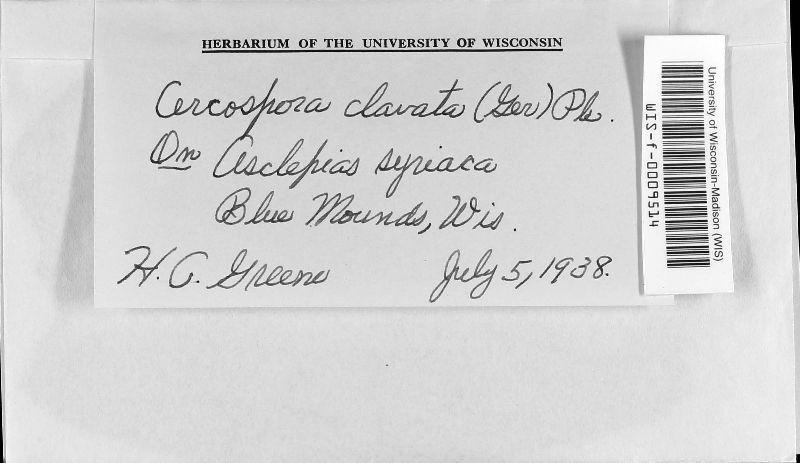 HERBARIUM OF THE UNIVERSITY OF WISCONSIN
Cercospora clavata (Ger) Pk.
On Asclepias syriaca
Blue Mounds, Wis.
H. C. Greene July 5, 1938.
University of Wisconsin-Madison (WIS)
WIS-f-0009514